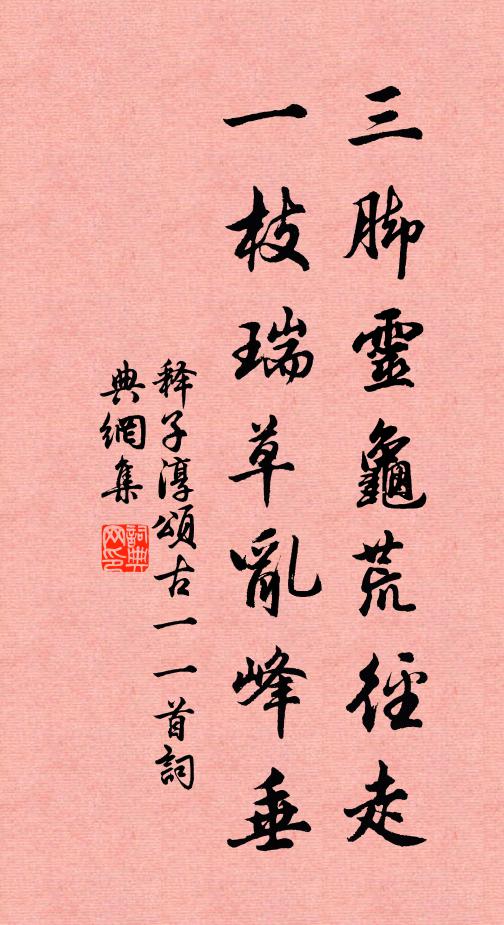 三脚靈龜荒徑走
一枝瑞草亂峰垂
释子淳頌古一一首詞
典網集
詞典網印